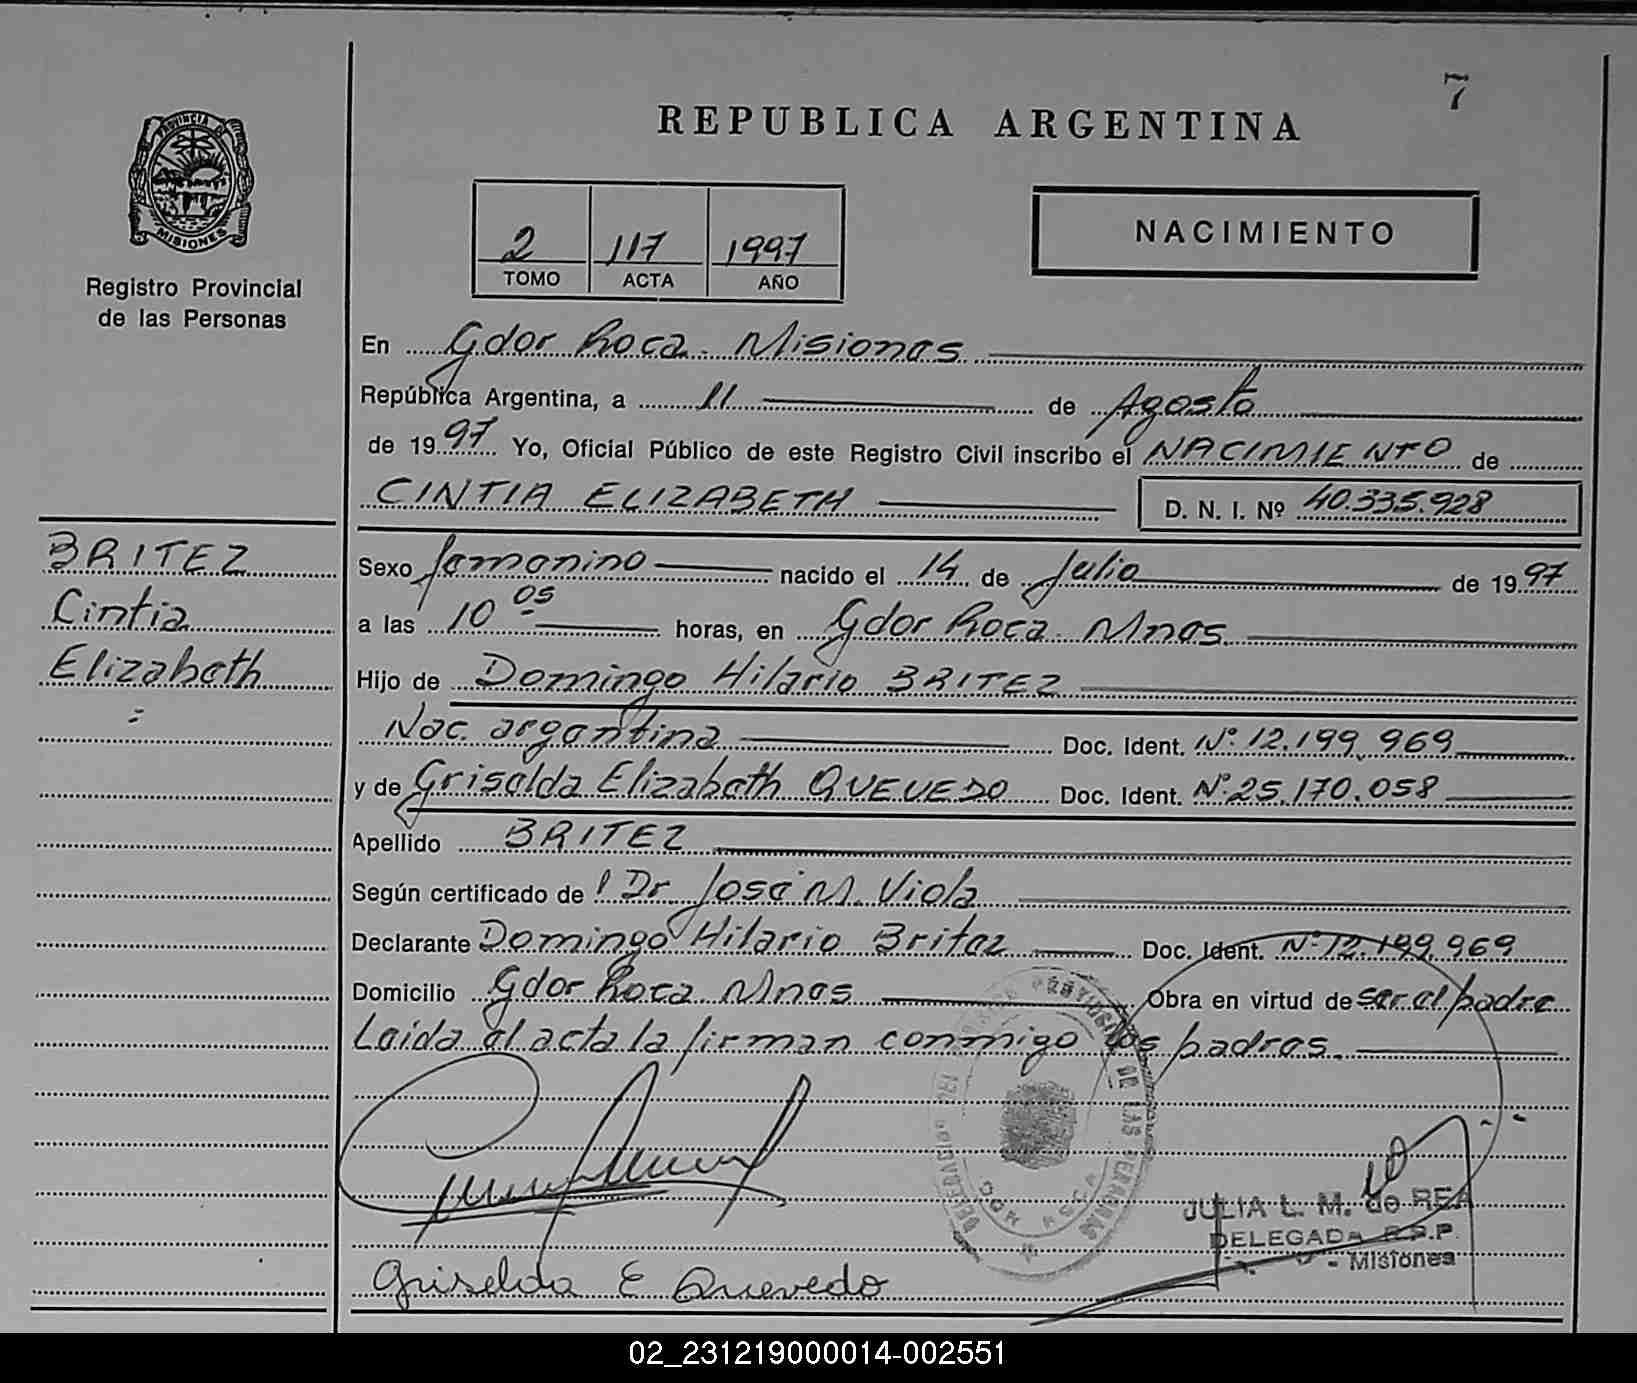 7
REPUBLICA ARGENTINA
PROVINCIA DE
MISIONES
Registro Provincial
de las Personas
2 117 1997
TOMO ACTA AÑO
NACIMIENTO
En Gdor Roca. Misiones
República Argentina, a 11 de Agosto
de 1997 Yo, Oficial Público de este Registro Civil inscribo el NACIMIENTO de
CINTIA ELIZABETH D. N. I. Nº 40.335.928
BRITEZ
Cintia
Elizabeth
Sexo femenino nacido el 14 de Julio de 1997
a las 10 05 horas, en Gdor Roca. Mnes.
Hijo de Domingo Hilario BRITEZ
Nac. argentina Doc. Ident. Nº 12.199.969
y de Griselda Elizabeth QUEVEDO Doc. Ident. Nº 25.170.058
Apellido BRITEZ
Según certificado de l Dr José M. Viola
Declarante Domingo Hilario Britez Doc. Ident. Nº 12.199.969
Domicilio Gdor Roca Mnes Obra en virtud de ser el padre
Leida el acta la firman conmigo los padres.
DE LAS PERSONAS
JULIA L. M. de REA
DELEGADA R.P.P.
- Misiones
Griselda E Quevedo
02_231219000014-002551